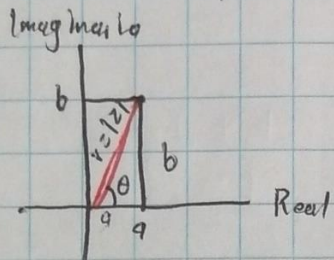 Imaginario
b
r=|z|
b
θ
Real
a
a